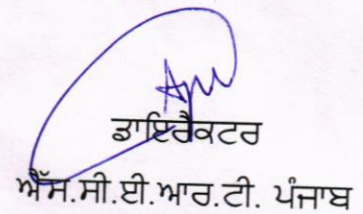 ਡਾਇਰੈਕਟਰ
ਐੱਸ.ਸੀ.ਈ.ਆਰ.ਟੀ. ਪੰਜਾਬ